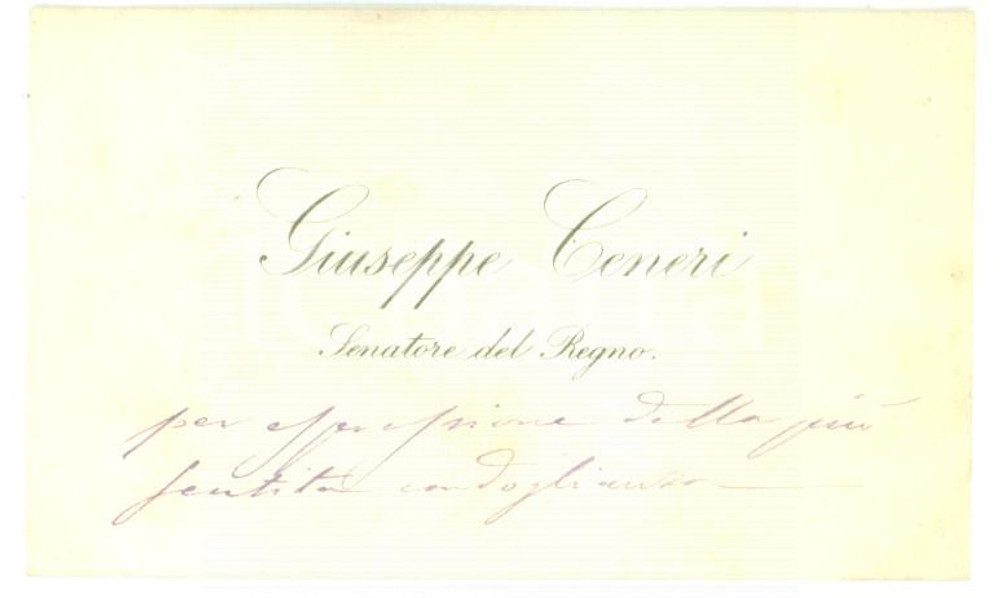 Giuseppe Ceneri
Senatore del Regno.
per espressione della più
sentita condoglianza